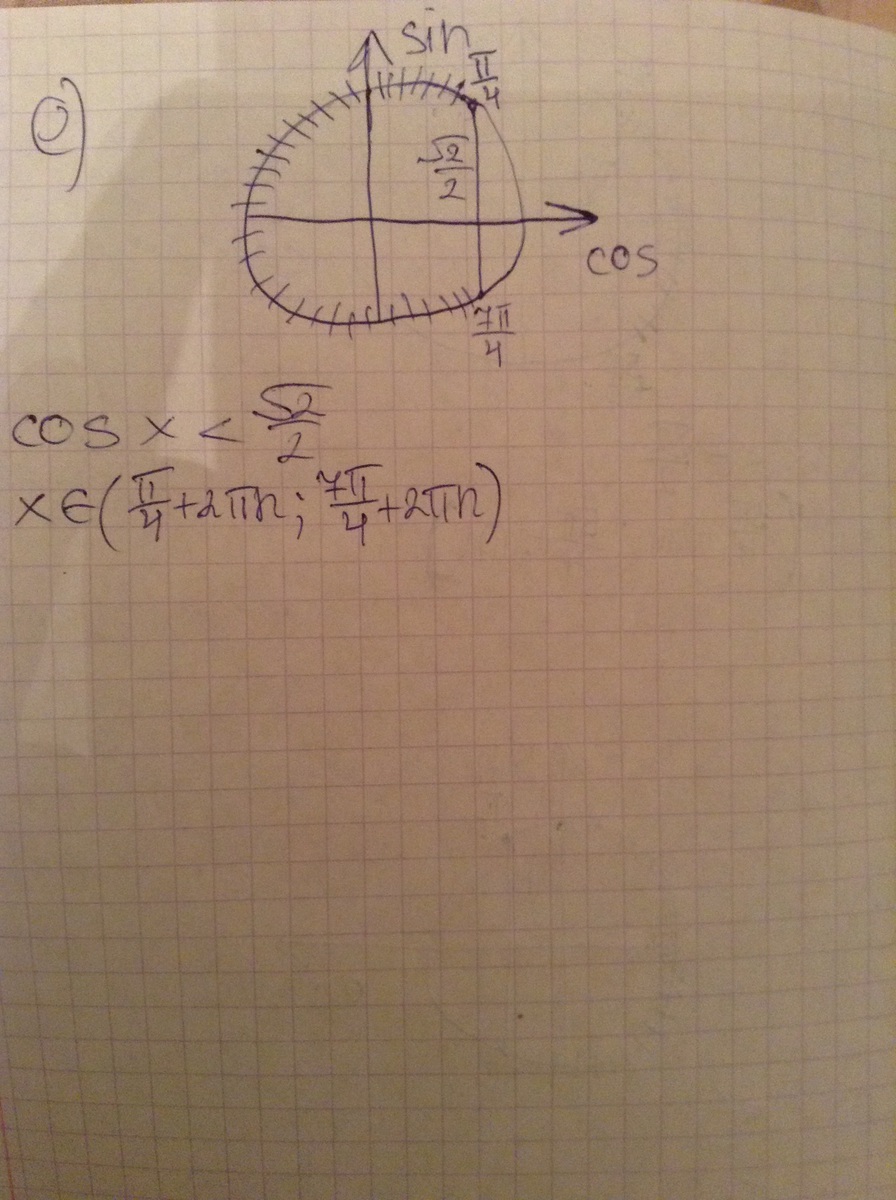 е)
sin
π/4
√2/2
cos
7π/4
cos x < √2/2
x ∈ (π/4 + 2πn; 7π/4 + 2πn)